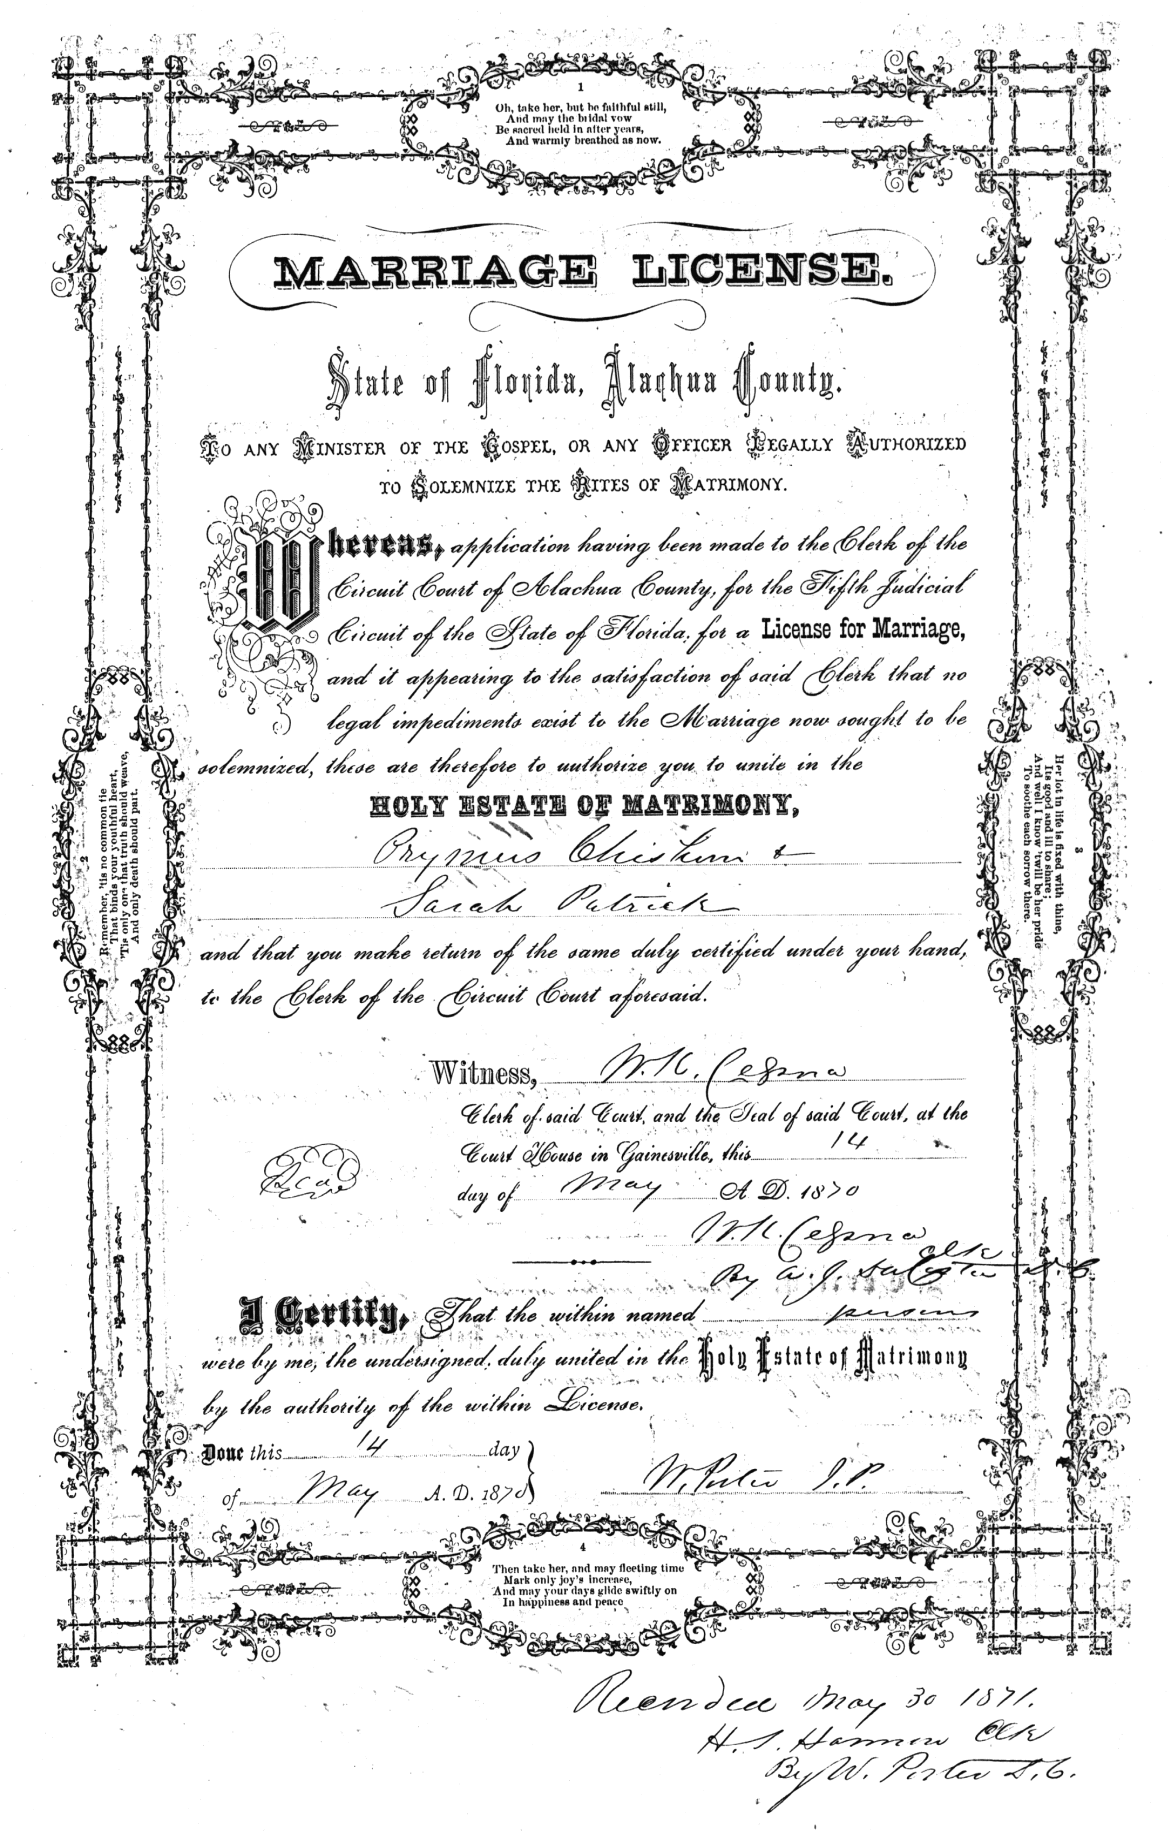 1
Oh, take her, but be faithful still,
And may the bridal vow
Be sacred held in after years,
And warmly breathed as now.
MARRIAGE LICENSE.
State of Florida, Alachua County.
TO ANY MINISTER OF THE GOSPEL, OR ANY OFFICER LEGALLY AUTHORIZED
TO SOLEMNIZE THE RITES OF MATRIMONY.
Whereas, application having been made to the Clerk of the
Circuit Court of Alachua County, for the Fifth Judicial
Circuit of the State of Florida, for a License for Marriage,
and it appearing to the satisfaction of said Clerk that no
legal impediments exist to the Marriage now sought to be
solemnized, these are therefore to authorize you to unite in the
HOLY ESTATE OF MATRIMONY,
Prymus Chiskum &
Sarah Patrick
and that you make return of the same duly certified under your hand,
to the Clerk of the Circuit Court aforesaid.
Witness, W. K. Cessna
Clerk of said Court, and the Seal of said Court, at the
Court House in Gainesville, this 14
day of May A. D. 1870
Seal
W. K. Cessna
Clk
By A. J. D. C.
I Certify, That the within named persons
were by me, the undersigned, duly united in the Holy Estate of Matrimony
by the authority of the within License.
Done this 14 day
of May A. D. 1870
W. Porter J. P.
2
Remember, 'tis no common tie
That binds your youthful heart,
'Tis only one that truth should weave,
And only death should part.
3
Her lot in life is fixed with thine,
Its good and ill to share;
And well I know 'twill be her pride
To soothe each sorrow there.
4
Then take her, and may fleeting time
Mark only joy's increase,
And may your days glide swiftly on
In happiness and peace
Recorded May 30 1871.
H. S. Harmon Clk
By W. Porter D. C.